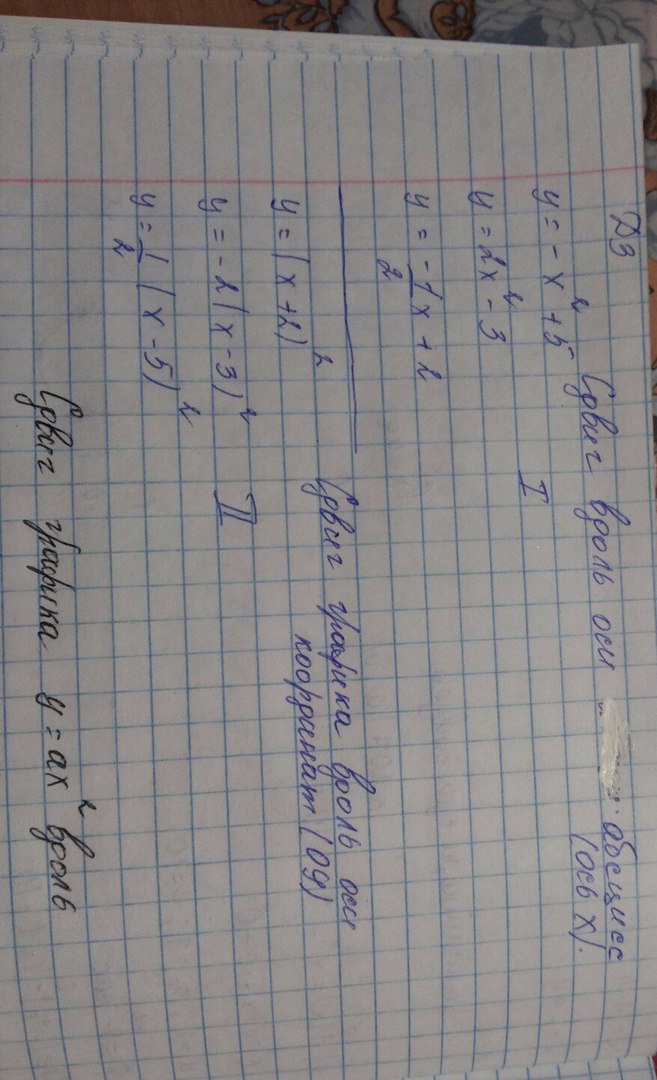 ДЗ
Сдвиг вдоль оси абсцисс
(ось x).
y = -x² + 5
I
y = 2x² - 3
y = -1/2 x + 2
Сдвиг графика вдоль оси
координат (оу)
y = (x+2)²
y = -2(x-3)²
II
y = 1/2 (x-5)²
Сдвиг графика y = ax² вдоль